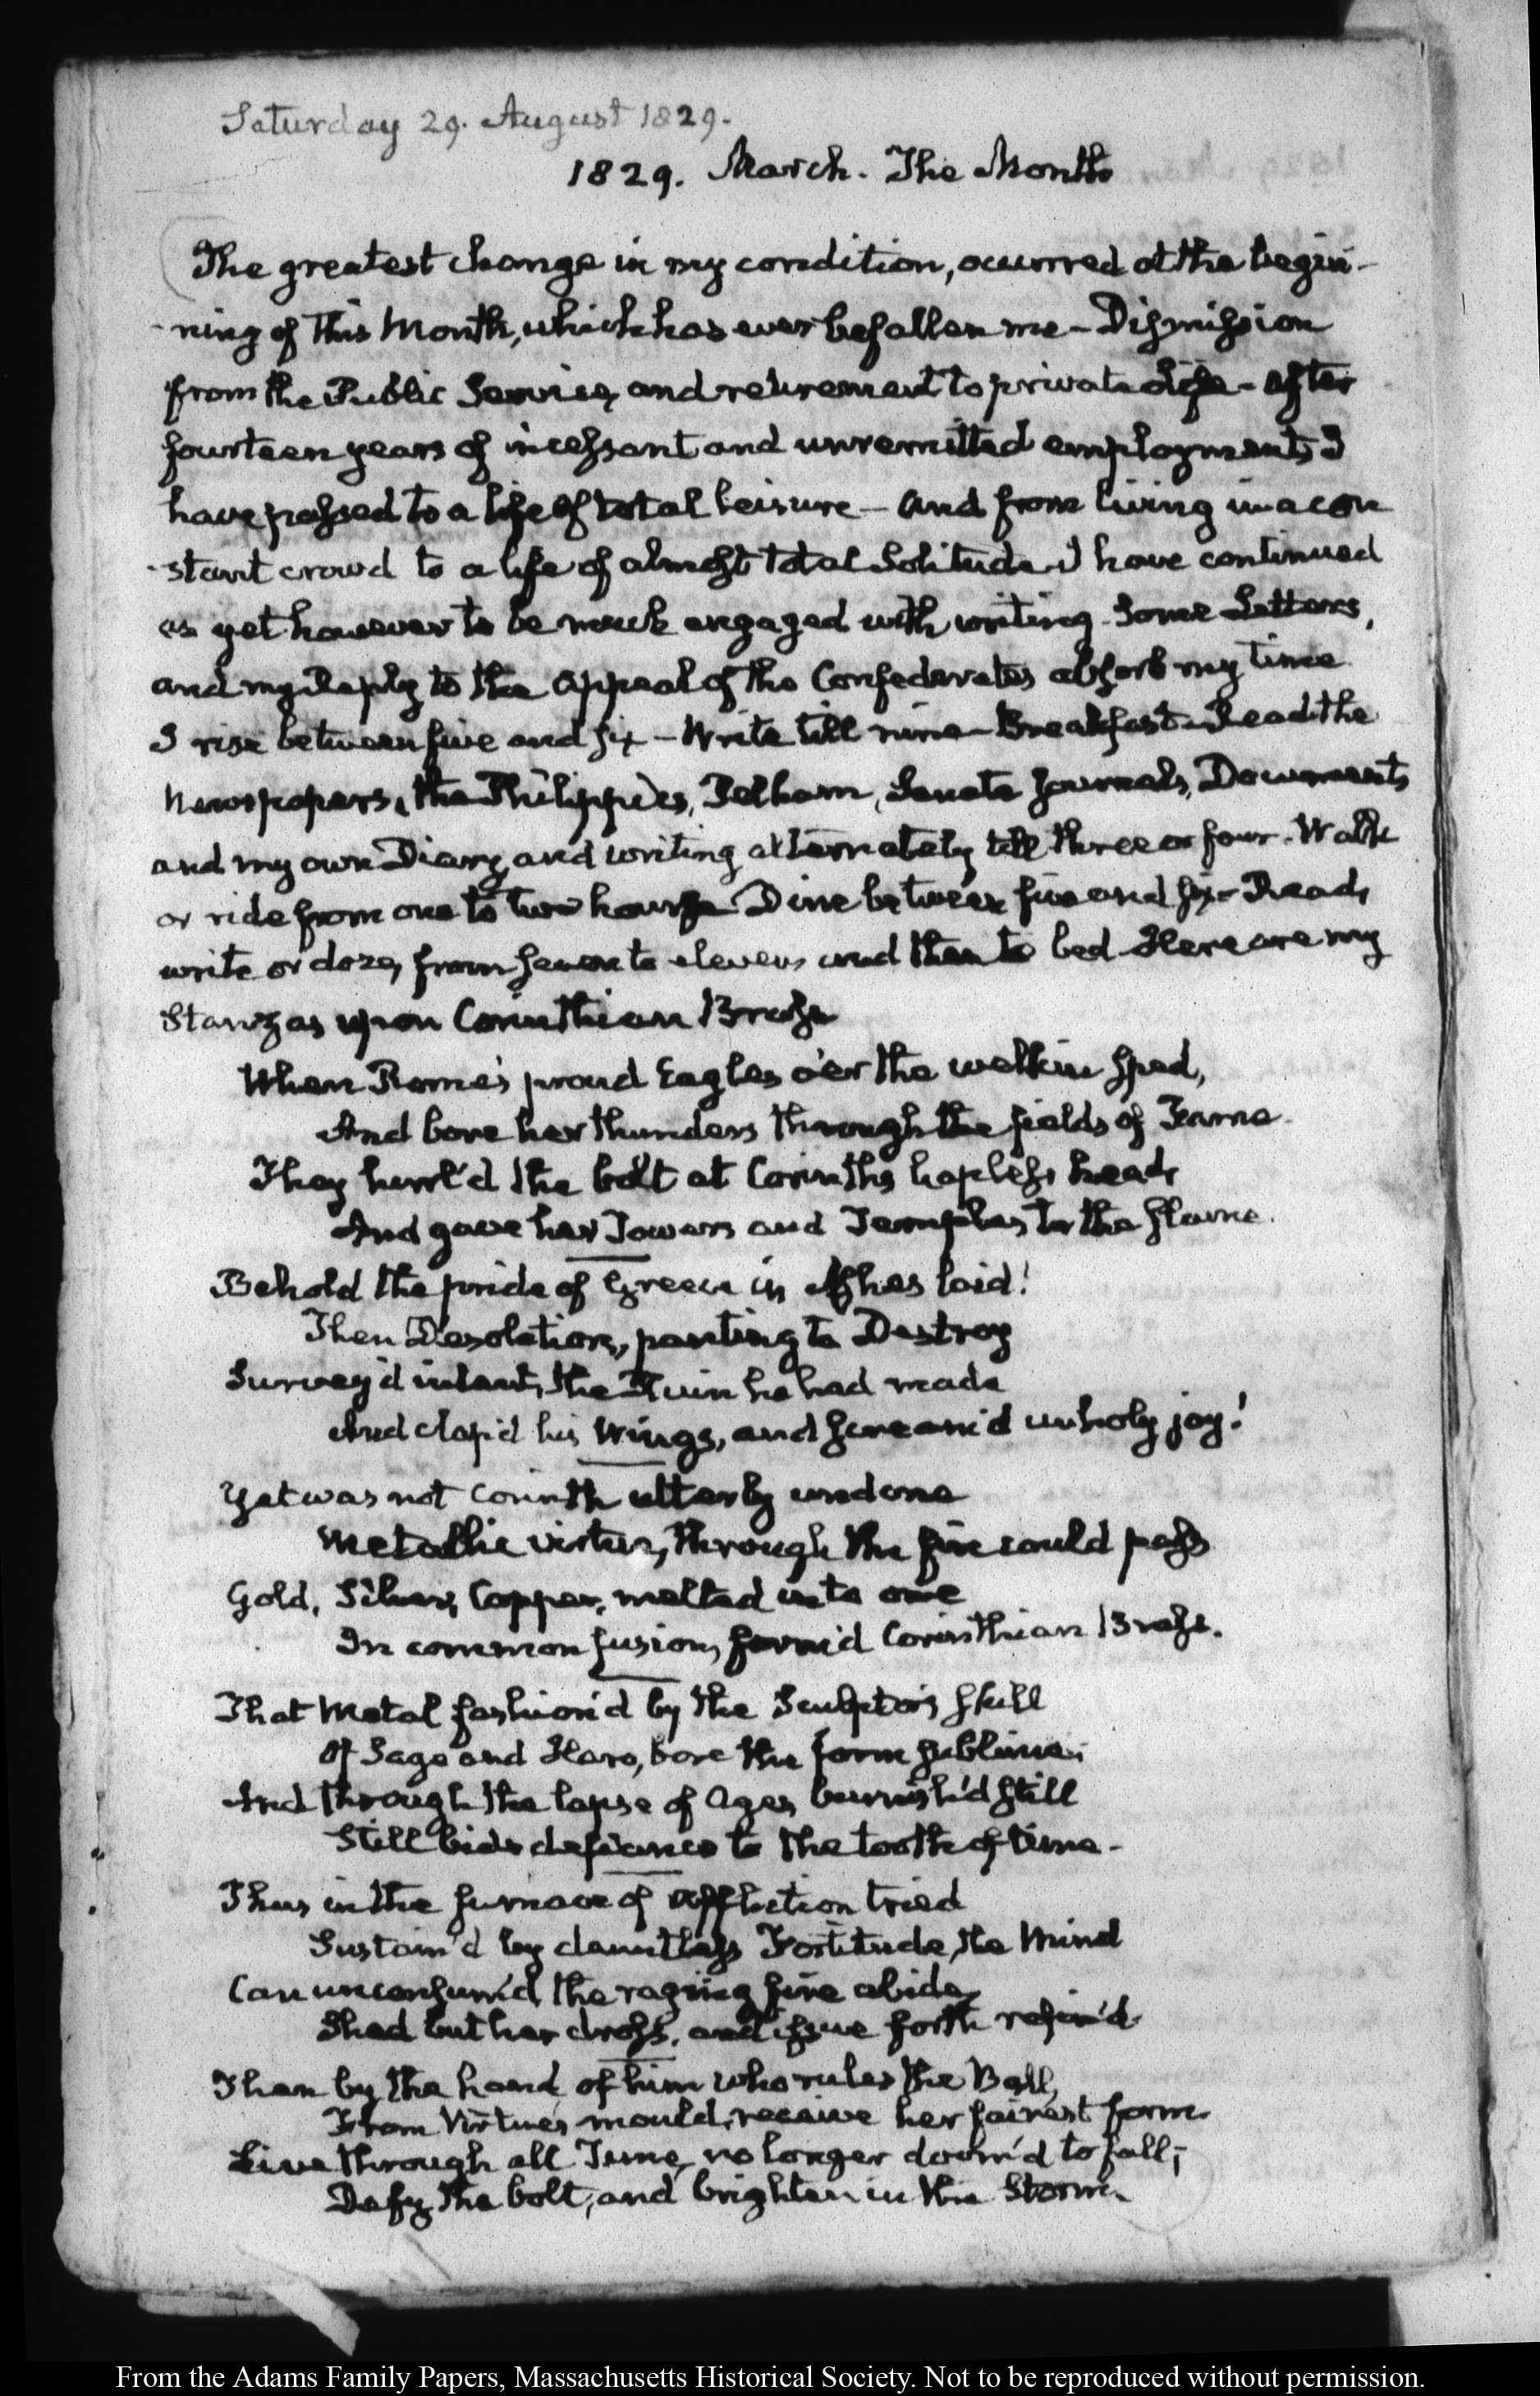 Saturday 29. August 1829.
1829. March. The Month
The greatest change in my condition, ocurred at the begin-
-ning of this Month, which has ever befallen me - Dismission
from the Public Service, and retirement to private life - After
fourteen years of incessant and unremitted employment, I
have passed to a life of total leisure - And from living in a con
-stant crowd to a life of almost total Solitude. I have continued
as yet however to be much engaged with writing. Some Letters,
and my Reply to the Appeal of the Confederates absorb my time
I rise between five and six - Write till nine - Breakfast - Read the
Newspapers, the Philippics, Pelham, Senate Journals, Documents
and my own Diary, and writing alternately till three or four. Walk
or ride from one to two hours - Dine between five and six - Read,
write or doze, from seven to eleven and then to bed. Here are my
Stanzas upon Corinthian Brass
When Rome's proud Eagles o'er the welkin sped,
And bore her thunders through the fields of Fame.
They hurl'd the bolt at Corinths hapless head,
And gave her Towers and Temples to the flame.
Behold the pride of Greece in Ashes laid!
Then Desolation, panting to Destroy
Survey'd intent, the Ruin he had made
And clap'd his Wings, and scream'd unholy joy!
Yet was not Corinth utterly undone
Metallic virtue, through the fire could pass
Gold, Silver, Copper, melted into one
In common fusion, form'd Corinthian Brass.
That Metal fashion'd by the Sculptor's skill
Of Sage and Hero, bore the form sublime;
And through the lapse of Ages burnish'd still
Still bids defiance to the tooth of time.-
Thus in the furnace of Affliction tried
Sustain'd by dauntless Fortitude, the Mind
Can unconsum'd, the raging fire abide,
Shed but her dross, and issue forth refin'd.
Then by the hand of him who rules the Ball,
From Virtues mould, receive her fairest form
Live through all Time, no longer doom'd to fall;
Defy the bolt, and brighten in the Storm.
From the Adams Family Papers, Massachusetts Historical Society. Not to be reproduced without permission.